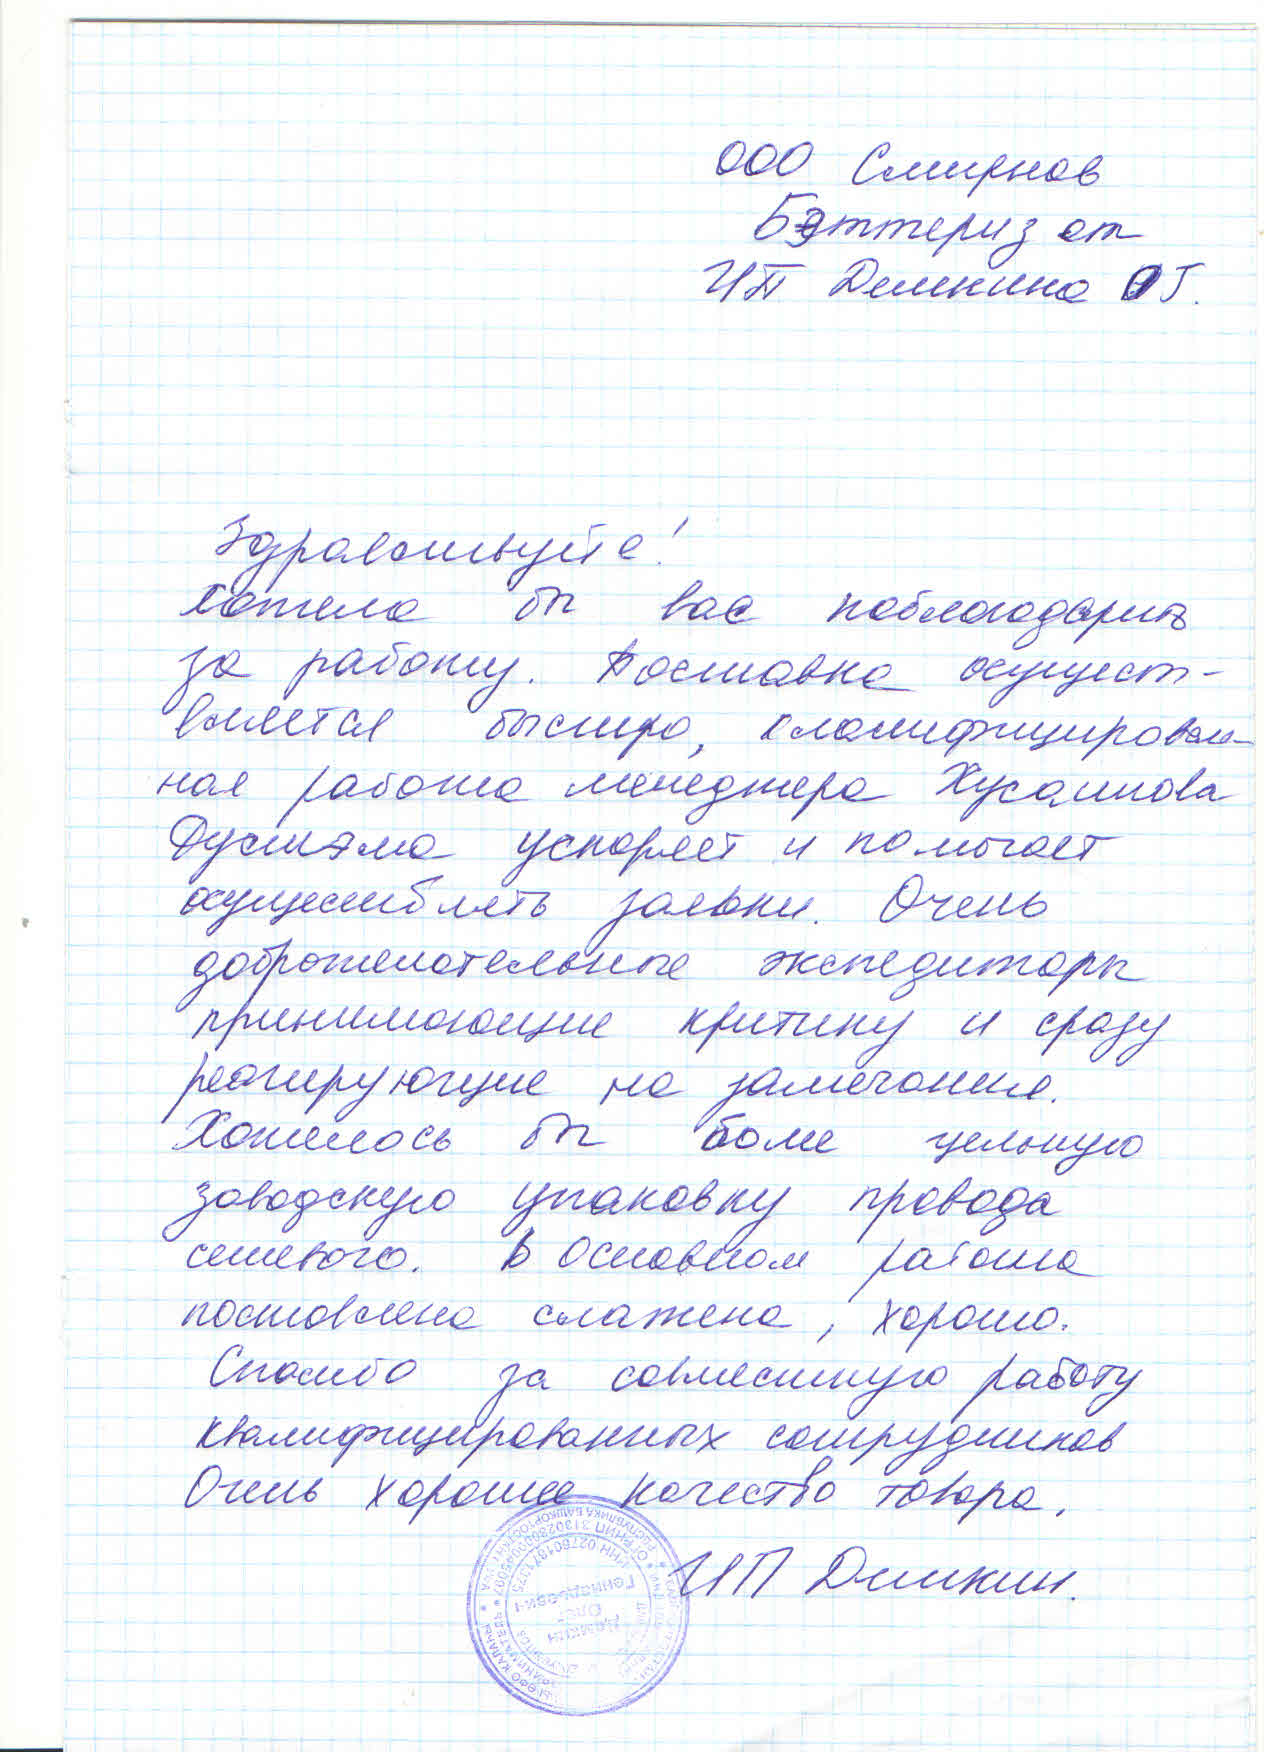 ООО Смирнов
Бэттериз от
ИП Демкина ОГ.
Здравствуйте!
Хотела бы вас поблагодарить
за работу. Поставка осущест-
вляется быстро, кламифицирован-
ная работа менеджера Хусаинова
Рустэма ускоряет и помогает
осуществлять заявки. Очень
доброжелательные экспедиторы
принимающие критику и сразу
реагирующие на замечание.
Хотелось бы более цельную
заводскую упаковку провода
сетевого. В основном работа
поставлена слажена, хорошо.
Спасибо за совместную работу
квалифицированных сотрудников
Очень хорошее качество товара.
ИП Демкин.
Демкин
Олег
Геннадьевич